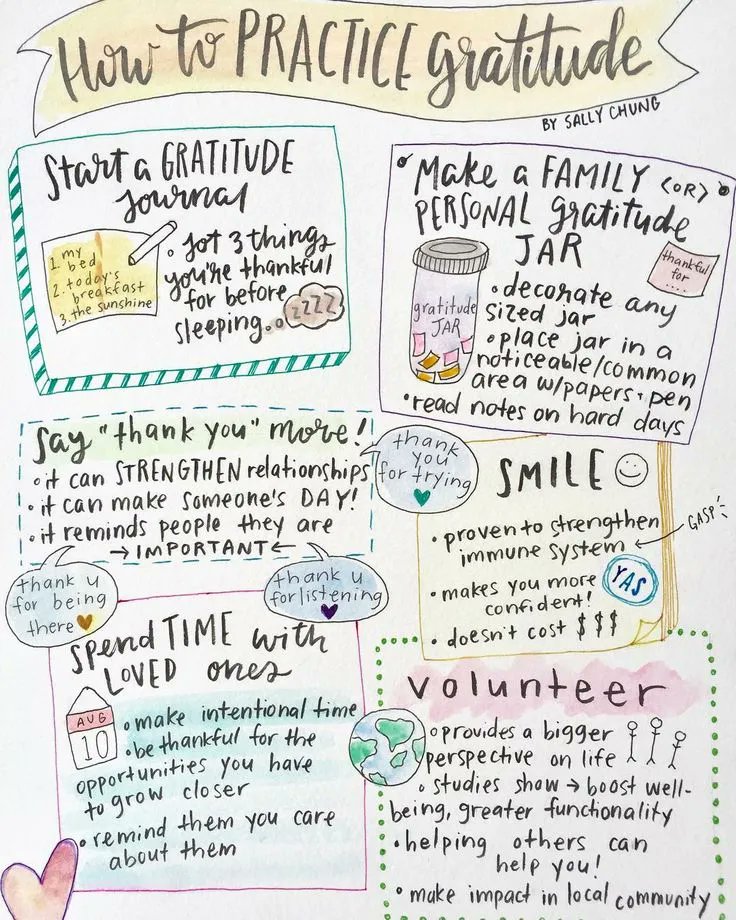 How to PRACTICE gratitude
BY SALLY CHUNG
Start a GRATITUDE
Journal
1. my
bed
2. today's
breakfast
3. the sunshine
• Jot 3 things
you're thankful
for before
sleeping.
zzzz
Make a FAMILY <OR>
PERSONAL gratitude
JAR
thankful
for ...
gratitude
JAR
• decorate any
sized jar
• place jar in a
noticeable/common
area w/papers + pen
• read notes on hard days
Say "thank you" more!
• it can STRENGTHEN relationships
• it can make someone's DAY!
• it reminds people they are
→ IMPORTANT ←
thank
you
for trying
thank u
for being
there
thank u
for listening
SMILE
• proven to strengthen
immune system
GASP
• makes you more
confident!
YAS
• doesn't cost $$$
Spend TIME with
LOVED ones
AUG
10
• make intentional time
• be thankful for the
opportunities you have
to grow closer
• remind them you care
about them
volunteer
• provides a bigger
perspective on life
• studies show → boost well-
being, greater functionality
• helping others can
help you!
• make impact in local community